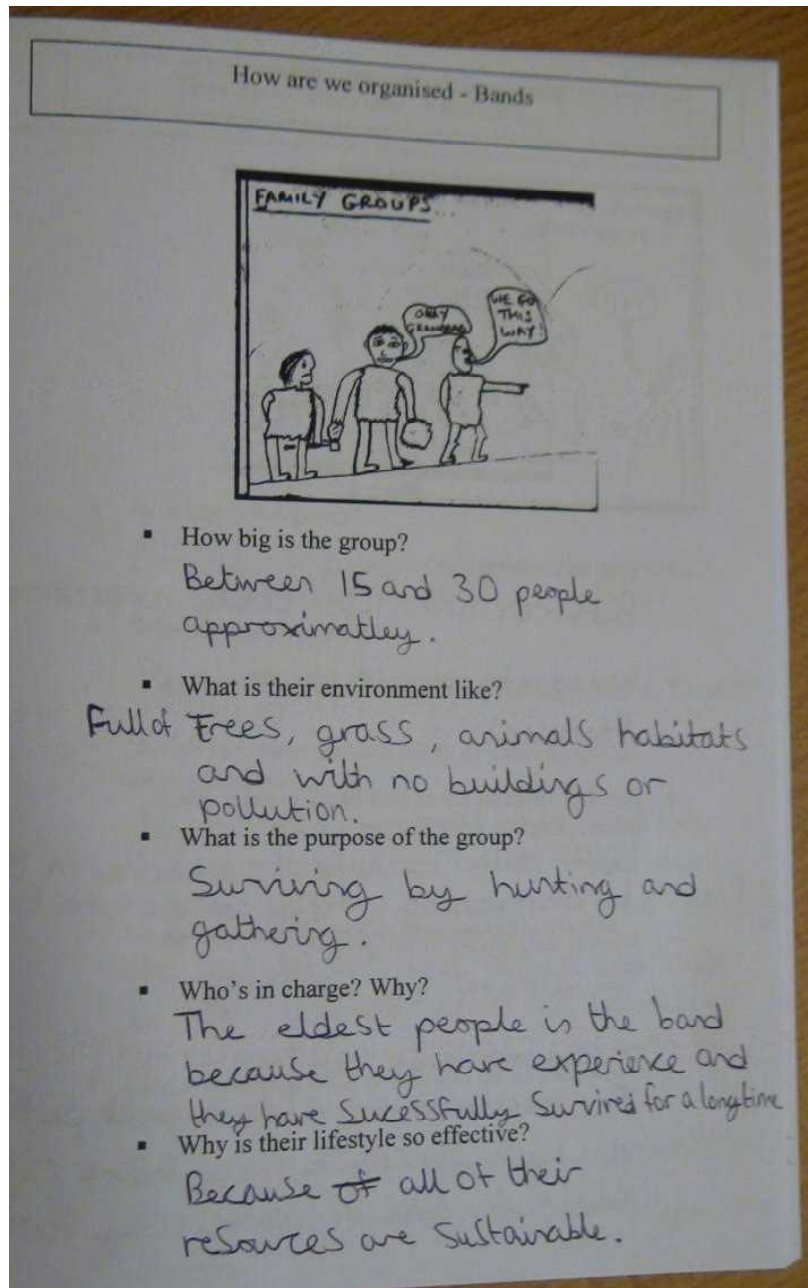 How are we organised - Bands
FAMILY GROUPS...
OKAY
GRANDDAD
WE GO
THIS
WAY!
▪ How big is the group?
Between 15 and 30 people
approximatley.
▪ What is their environment like?
Full of Trees, grass, animals habitats
and with no buildings or
pollution.
▪ What is the purpose of the group?
Surviving by hunting and
gathering.
▪ Who's in charge? Why?
The eldest people in the band
because they have experience and
they have Sucessfully Survived for a long time
▪ Why is their lifestyle so effective?
Because of all of their
resources are sustainable.